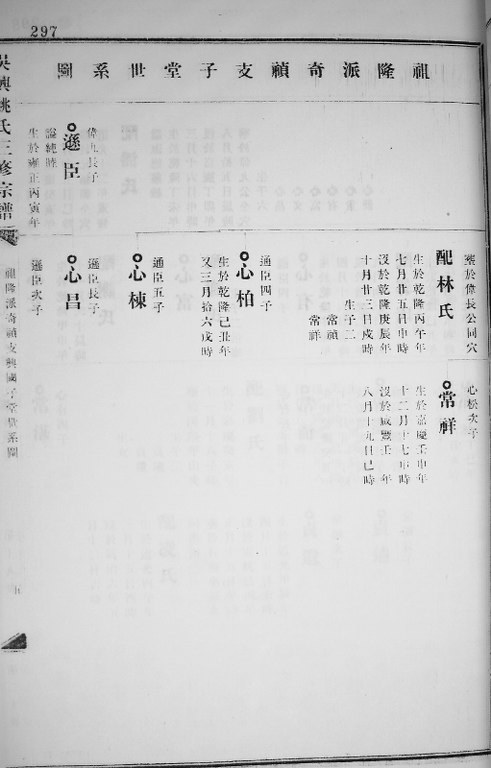 297
祖隆派奇禎支子堂世系圖
葬於偉長公同穴
配林氏
生於乾隆丙午年
七月廿五日申時
沒於乾隆庚辰年
十月廿三日戌時
生子二
常禎
常祥
心松次子
常祥
生於嘉慶壬申年
十二月十七申時
沒於咸豐壬 年
八月十九日巳時
遹臣四子
心柏
生於乾隆己丑年
又三月拾六戌時
遹臣五子
心棟
偉九長子
遜臣
諡純睦
生於雍正丙寅年
遹臣長子
心昌
遹臣次子
吳興姚氏三修宗譜
祖隆派奇禎支興國子堂世系圖